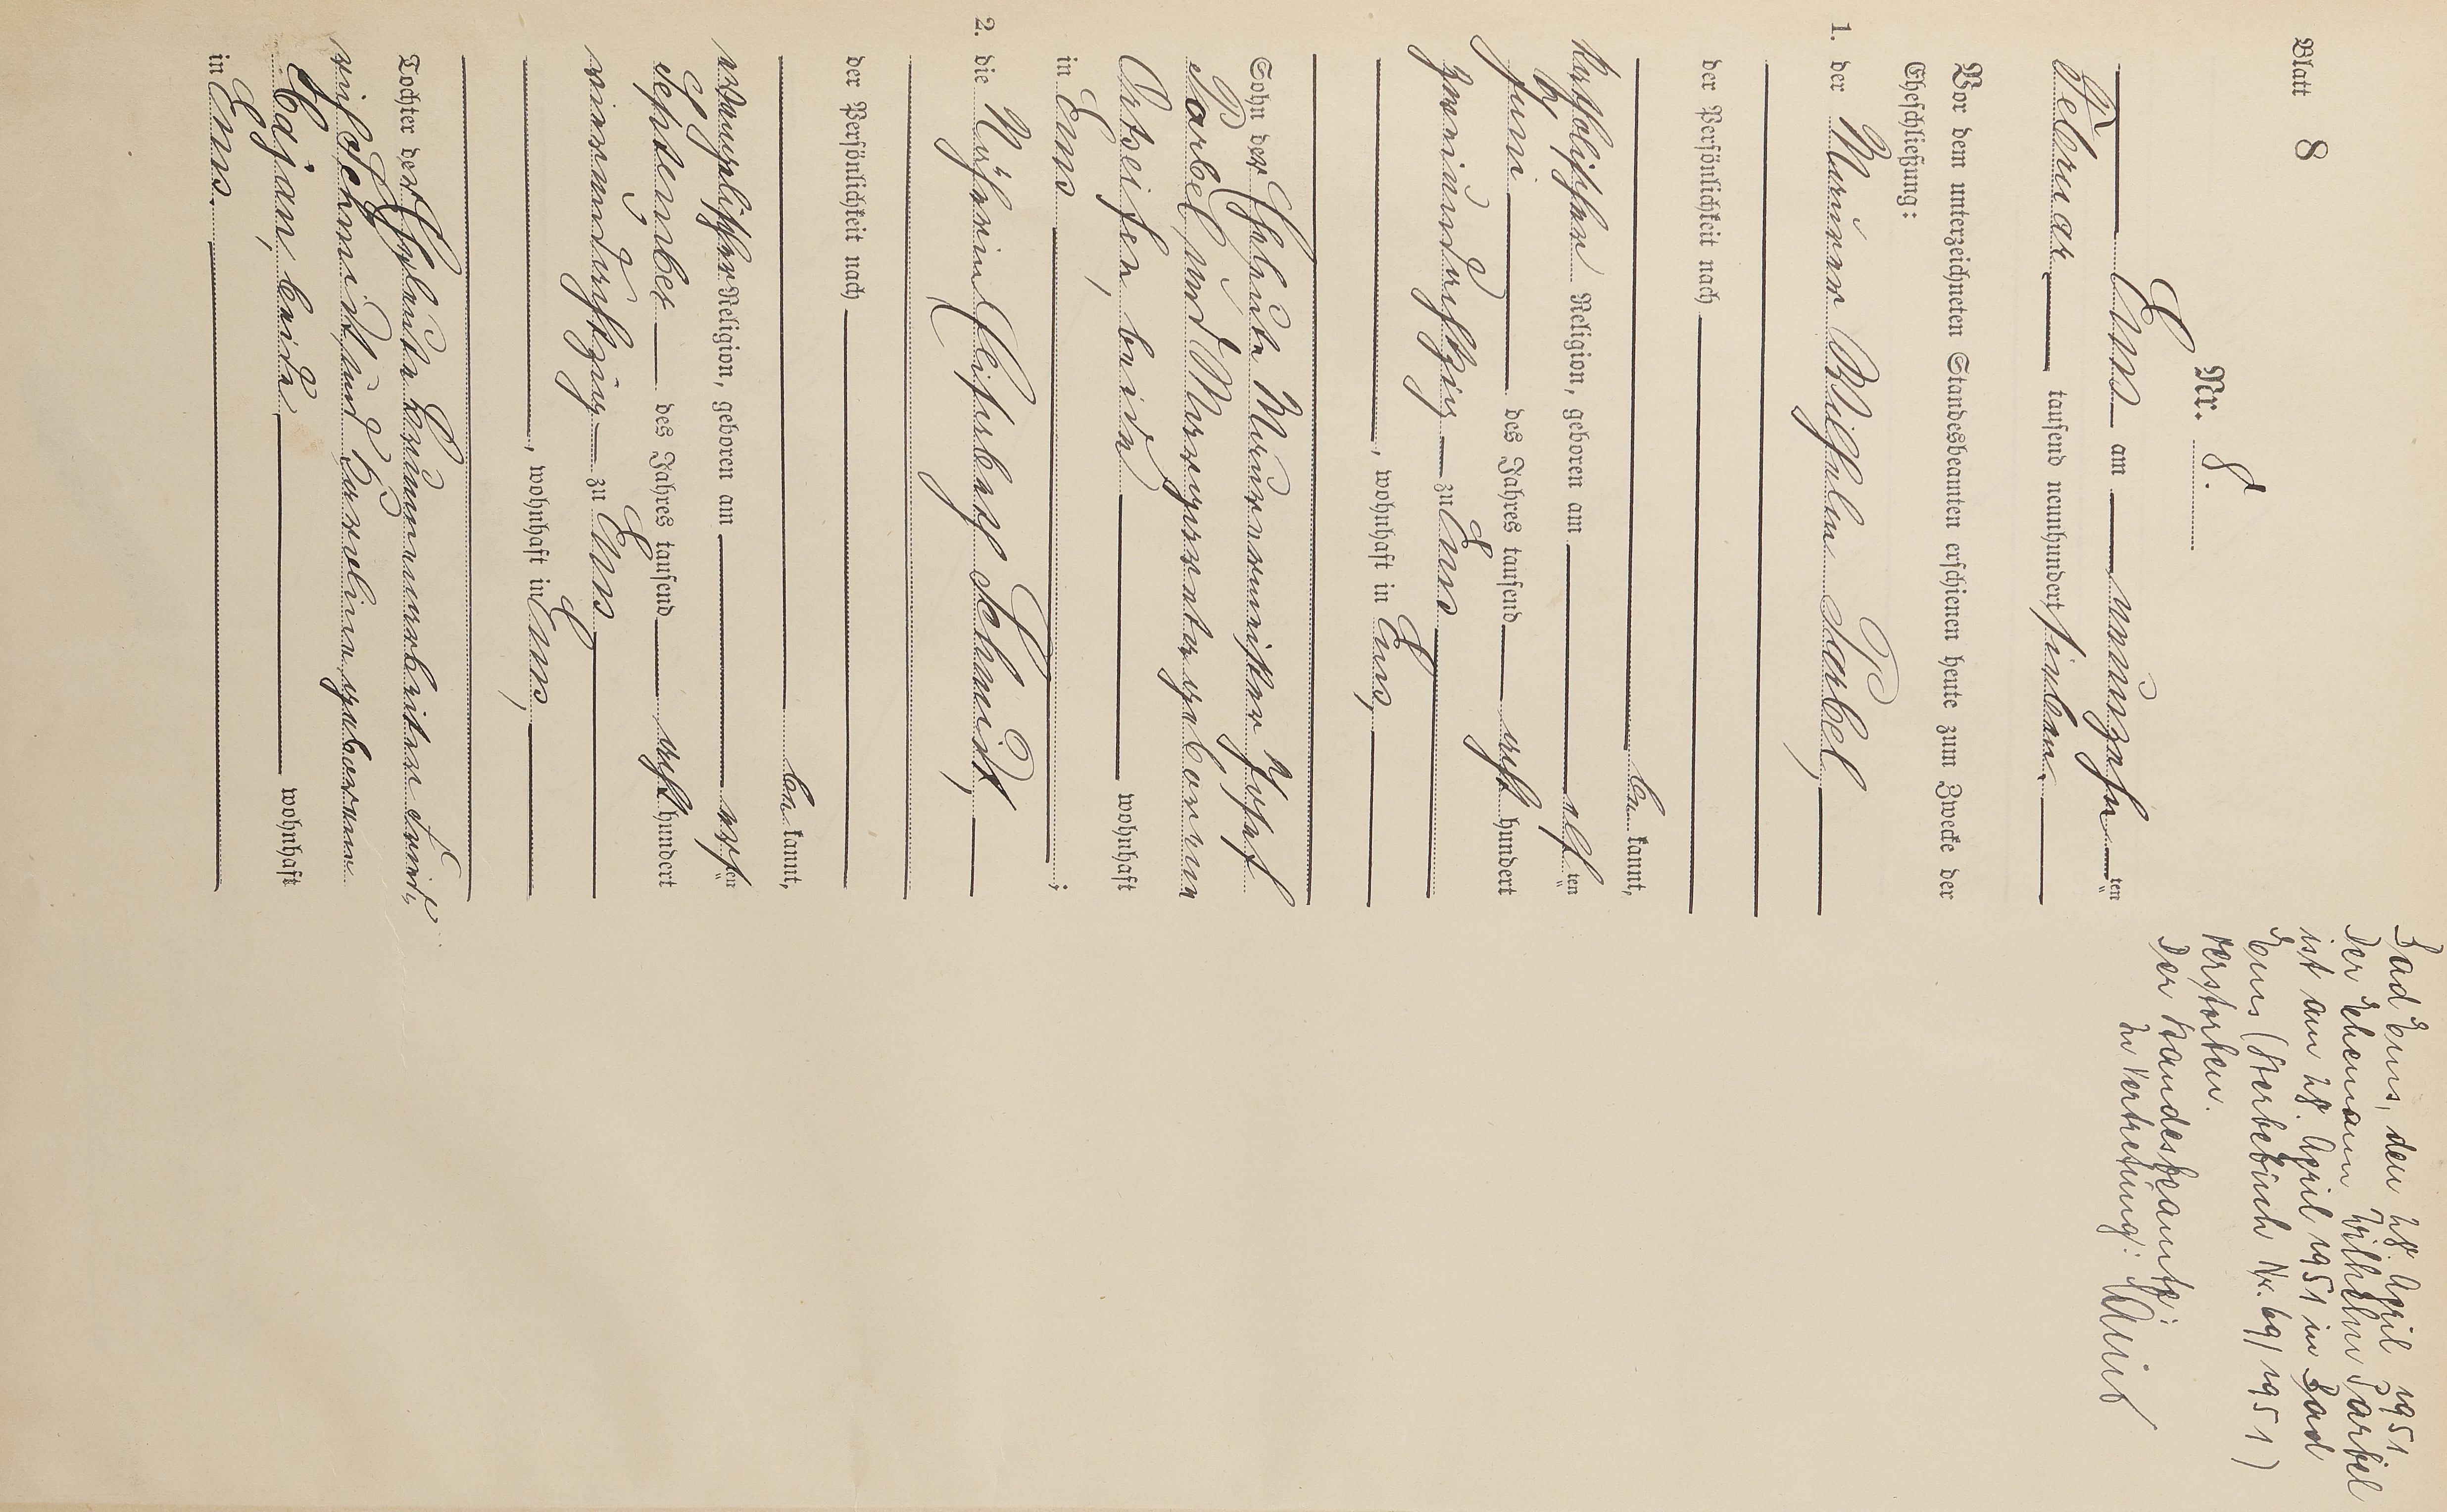 Blatt 8
Nr. 8.
Ems am neunzehnten
Februar tausend neunhundert sieben
Vor dem unterzeichneten Standesbeamten erschienen heute zum Zwecke der
Eheschließung:
1. der Maurer Wilhelm Sarbel,
der Persönlichkeit nach
be kannt,
katholischer Religion, geboren am elften
Juni des Jahres tausend acht hundert
zweiundachtzig zu Ems
, wohnhaft in Ems,
Sohn der Eheleute Maurermeister Josef
Sarbel und Margaretha geborenen
Ortseifen, beide
wohnhaft
in Ems ;
2. die Näherin Elisabeth Schmidt,
der Persönlichkeit nach
be kannt,
evangelischer Religion, geboren am ersten
September des Jahres tausend acht hundert
vierundachtzig zu Ems
, wohnhaft in Ems,
Tochter der Eheleute Brunnenarbeiter Fried-
rich Schmidt und Karoline geborenen
Edjan, beide wohnhaft
in Ems.
Bad Ems, den 28. April 1951
Der Ehemann Wilhelm Sarbel
ist am 28. April 1951 in Bad
Ems (Sterbebuch Nr. 69/1951)
verstorben.
Der Standesbeamte:
In Vertretung: